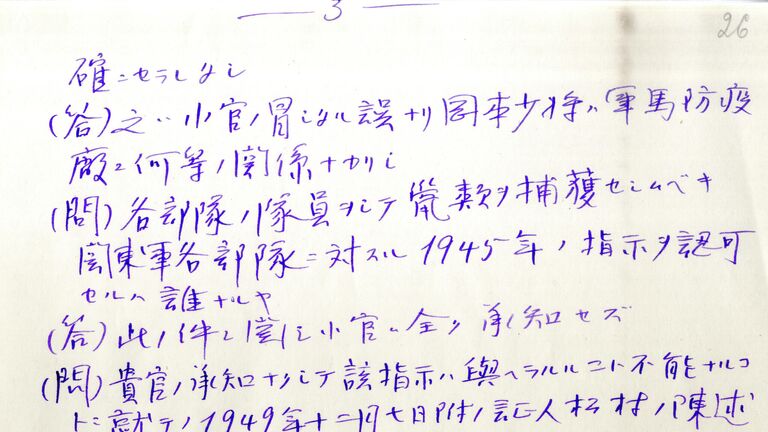 3
26
確ニセラレタシ
(答)之ハ小官ノ冒シタル誤ナリ岡本少将ハ軍馬防疫
廠ニ何等ノ関係ナカリシ
(問)各部隊ノ隊員ヲシテ鼠類ヲ捕獲セシムベキ
関東軍各部隊ニ対スル1945年ノ指示ヲ認可
セルハ誰ナルヤ
(答)此ノ件ニ関シ小官ハ全ク承知セズ
(問)貴官ノ承知ナクシテ該指示ハ與ヘラルルコト不能ナルコ
トニ就テノ1949年十二月七日附ノ証人松村ノ陳述